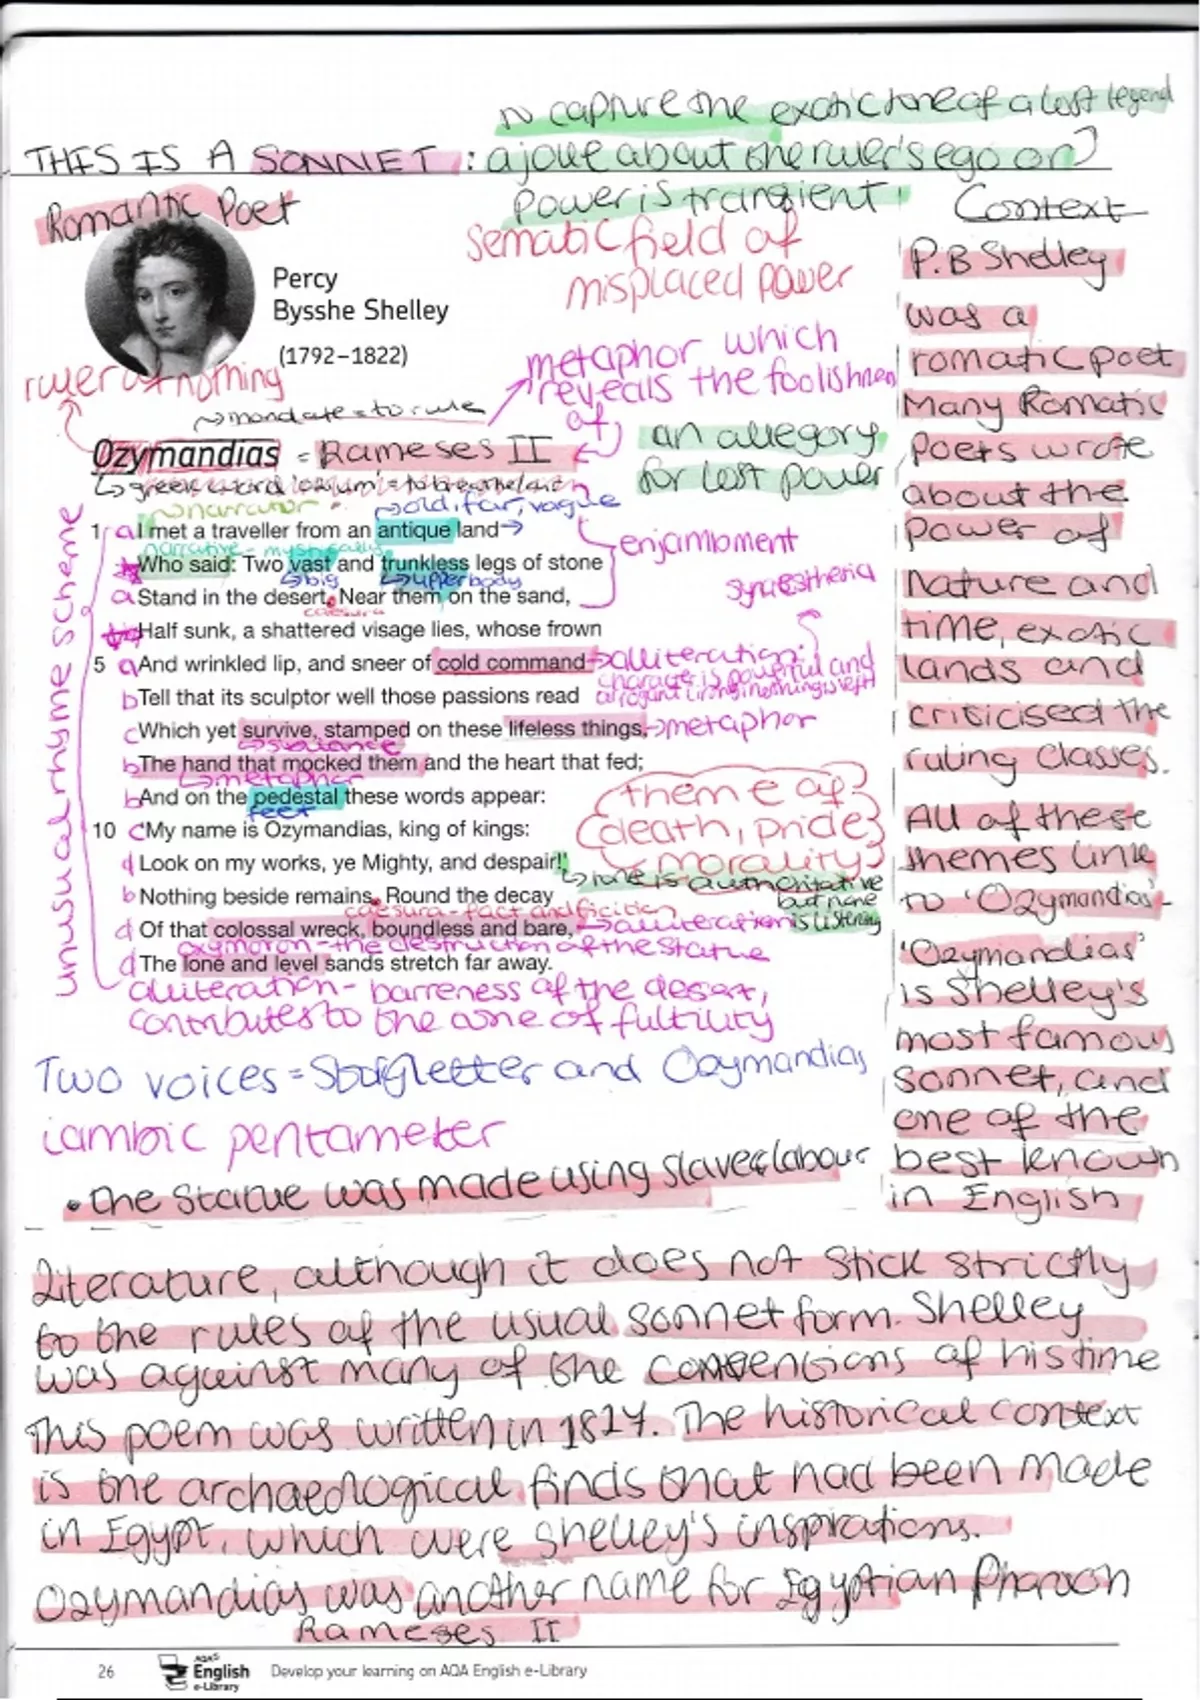 to capture the exotic tone of a lost legend
THIS IS A SONNET : a joke about the ruler's ego or?
Power is transient
Romantic Poet
Percy
Bysshe Shelley
(1792–1822)
Sematic field of
misplaced power
ruler of nothing
metaphor which
reveals the foolishness
of
mandate = to rule
Ozymandias = Rameses II
an allegory
for lost power
greek word 'ozium' = to breathe/air
narrator
old, far, vague
unusual rhyme scheme
1 a I met a traveller from an antique land
enjambment
narrative - mystically
Who said: Two vast and trunkless legs of stone
big
upper body
a Stand in the desert. Near them on the sand,
synaesthesia
caesura
Half sunk, a shattered visage lies, whose frown
5 a And wrinkled lip, and sneer of cold command
alliteration:
b Tell that its sculptor well those passions read
c Which yet survive, stamped on these lifeless things,
metaphor
b The hand that mocked them and the heart that fed;
metaphor
b And on the pedestal these words appear:
feet
theme of
death, pride
morality
10 c My name is Ozymandias, king of kings:
d Look on my works, ye Mighty, and despair!'
tone is authoritative
but none
is listening
b Nothing beside remains. Round the decay
caesura - fact and ficition
d Of that colossal wreck, boundless and bare,
alliteration
oxymoron - the destruction of the statue
d The lone and level sands stretch far away.
alliteration - barreness of the desert,
contributes to the tone of fultility
Two voices = and Ozymandias
iambic pentameter
• the statue was made using slave labour
Context
P.B Shelley
was a
romatic poet
Many Romatic
Poets wrote
about the
power of
Nature and
time, exotic
lands and
criticised the
ruling classes.
All of these
themes link
to 'Ozymandias'-
'Ozymandias'
is Shelley's
most famous
sonnet, and
one of the
best known
in English
Literature, although it does not stick strictly
to the rules of the usual sonnet form. Shelley
was against many of the conventions of his time
This poem was written in 1817. The historical context
is the archaeological finds that had been made
in Egypt, which were Shelley's inspirations.
Ozymandias was another name for Egyptian Pharaoh
Rameses II
26
AQA
English
e-Library
Develop your learning on AQA English e-Library